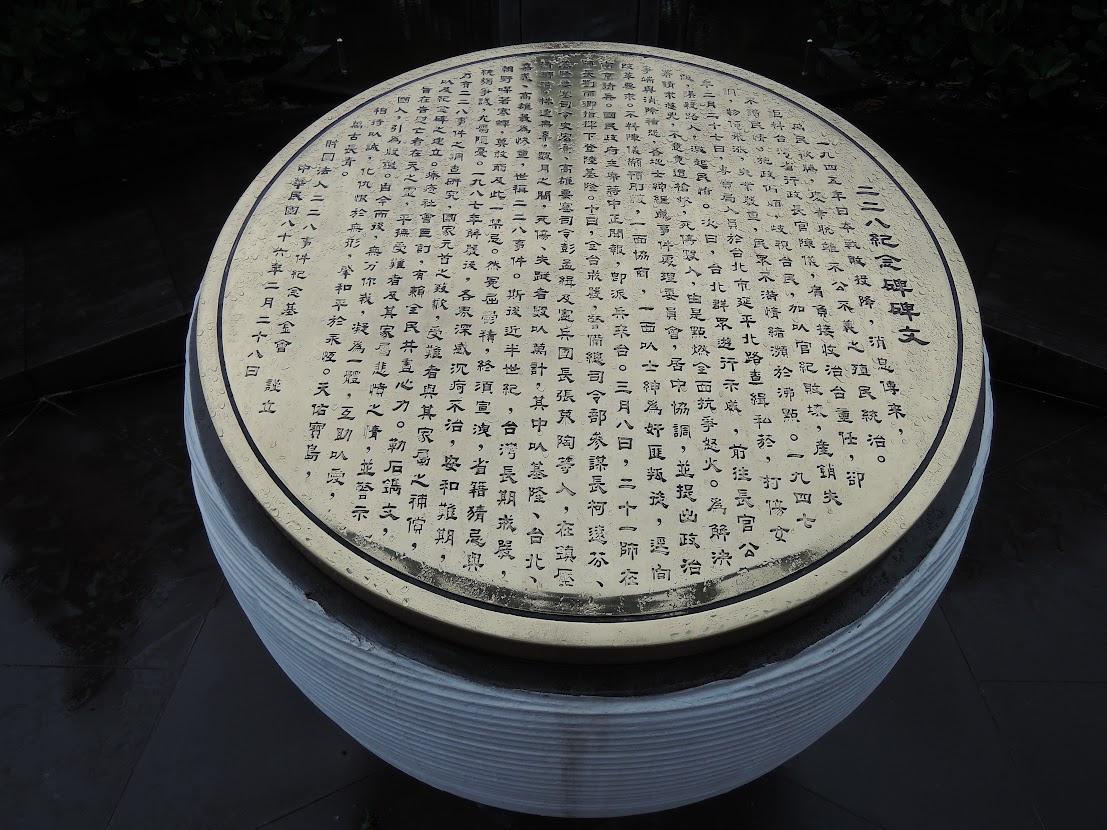 二二八紀念碑碑文
一九四五年日本戰敗投降，消息傳來，
萬民歡騰，慶幸脫離不公不義之殖民統治。
詎料台灣省行政長官陳儀，肩負接收治台重任，卻
不諳民情，施政偏頗，歧視台民，加以官紀敗壞，產銷失
調，物價飛漲，失業嚴重，民眾不滿情緒瀕於沸點。一九四七
年二月二十七日，專賣局人員於台北市延平北路查緝私菸，打傷女
販，誤殺路人，激起民憤。次日，台北群眾遊行示威，前往長官公
署請求懲兇，不意竟遭槍擊，死傷數人，由是點燃全面抗爭怒火。為解決
爭端與消除積怨，各地士紳組成事件處理委員會，居中協調，並提出政治
改革要求。不料陳儀顢頇剛愎，一面協商，一面以士紳為奸匪叛徒，逕向
南京請兵。國民政府主席蔣中正聞報，即派兵來台。三月八日，二十一師在
師長劉雨卿指揮下登陸基隆。十日，全台戒嚴，警備總司令部參謀長柯遠芬、
基隆要塞司令史宏熹，高雄要塞司令彭孟緝及憲兵團長張慕陶等人，在鎮壓
清鄉時，株連無辜，數月之間，死傷、失蹤者數以萬計，其中以基隆、台北、
嘉義、高雄最為慘重，世稱二二八事件。斯後近半世紀，台灣長期戒嚴，
朝野噤若寒蟬，莫敢觸及此一禁忌。然冤屈鬱積，終須宣洩，省籍猜忌與
統獨爭議，尤屬隱憂。一九八七年解嚴後，各界深感沉疴不治，安和難期，
乃有二二八事件之調查研究，國家元首之致歉，受難者與其家屬之補償，
以及紀念碑之建立。療癒社會巨創，有賴全民共盡心力。勒石鐫文，
旨在告慰亡者在天之靈，平撫受難者及其家屬悲憤之情，並警示
國人，引為殷鑑。自今而後，無分你我，凝為一體，互助以愛，
相待以誠，化仇恨於無形，肇和平於永遠。天佑寶島，
萬古長青。
財團法人二二八事件紀念基金會　設立
中華民國八十六年二月二十八日